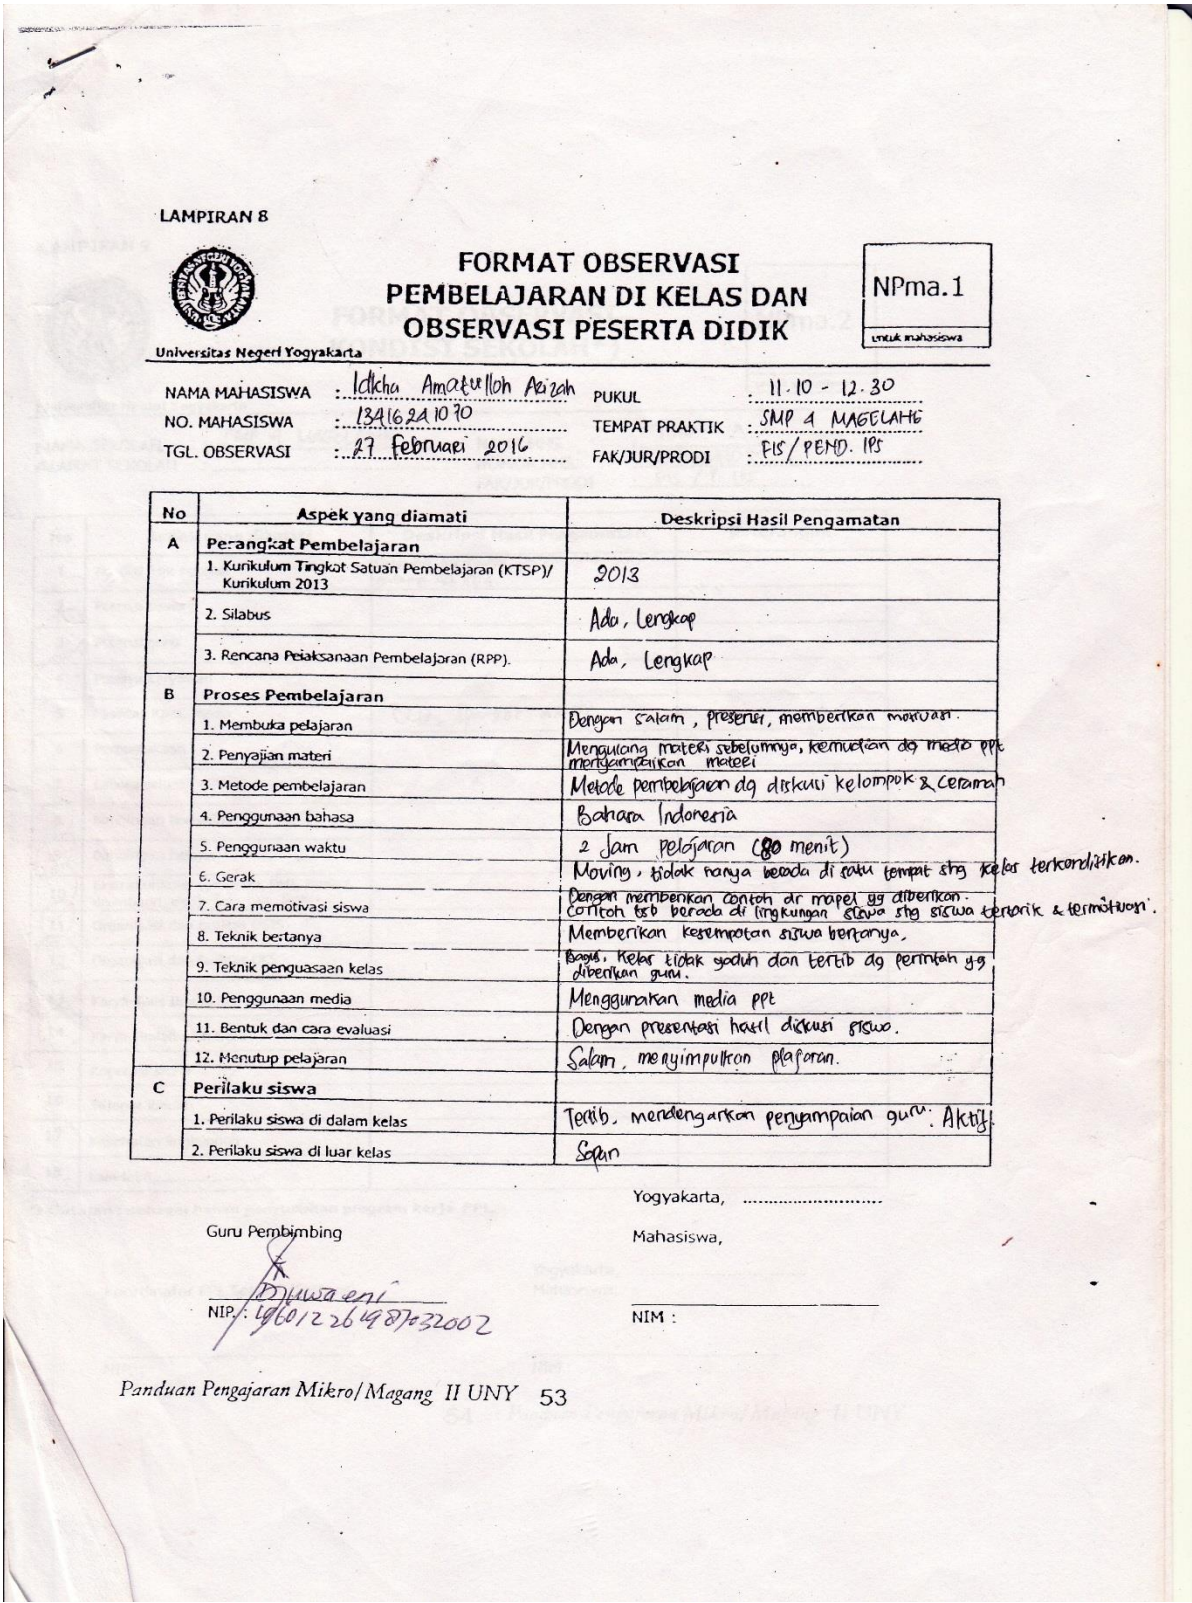 LAMPIRAN 8
FORMAT OBSERVASI
PEMBELAJARAN DI KELAS DAN
OBSERVASI PESERTA DIDIK
NPma.1
untuk mahasiswa
Universitas Negeri Yogyakarta
NAMA MAHASISWA : Idkha Amatulloh Azizah PUKUL : 11.10 - 12.30
NO. MAHASISWA : 13416241070 TEMPAT PRAKTIK : SMP 4 MAGELANG
TGL. OBSERVASI : 27 Februari 2016 FAK/JUR/PRODI : FIS / PEND. IPS
No Aspek yang diamati Deskripsi Hasil Pengamatan
A Perangkat Pembelajaran
1. Kurikulum Tingkat Satuan Pembelajaran (KTSP)/
Kurikulum 2013 2013
2. Silabus Ada, Lengkap
3. Rencana Pelaksanaan Pembelajaran (RPP). Ada, Lengkap
B Proses Pembelajaran
1. Membuka pelajaran Dengan salam, presensi, memberikan motivasi.
2. Penyajian materi Mengulang materi sebelumnya, kemudian dg media ppt
menyampaikan materi
3. Metode pembelajaran Metode pembelajaran dg diskusi kelompok & ceramah
4. Penggunaan bahasa Bahasa Indonesia
5. Penggunaan waktu 2 Jam pelajaran (80 menit)
6. Gerak Moving, tidak hanya berada di satu tempat shg kelas terkondisikan.
7. Cara memotivasi siswa Dengan memberikan contoh dr mapel yg diberikan.
Contoh tsb berada di lingkungan siswa shg siswa tertarik & termotivasi.
8. Teknik bertanya Memberikan kesempatan siswa bertanya.
9. Teknik penguasaan kelas Bagus, kelas tidak gaduh dan tertib dg perintah yg
diberikan guru.
10. Penggunaan media Menggunakan media ppt
11. Bentuk dan cara evaluasi Dengan presentasi hasil diskusi siswa.
12. Menutup pelajaran Salam, menyimpulkan plajaran.
C Perilaku siswa
1. Perilaku siswa di dalam kelas Tertib, mendengarkan penyampaian guru. Aktif.
2. Perilaku siswa di luar kelas Sopan
Yogyakarta, ............................
Guru Pembimbing Mahasiswa,
Djuwaeni
NIP. : 196012261987032002 NIM :
Panduan Pengajaran Mikro/Magang II UNY 53